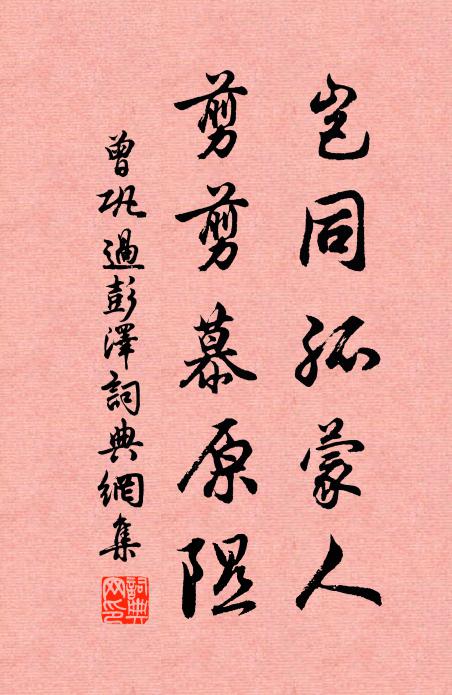 豈同孤蒙人
剪剪慕原隰
曾鞏過彭澤詞典網集
詞典網印